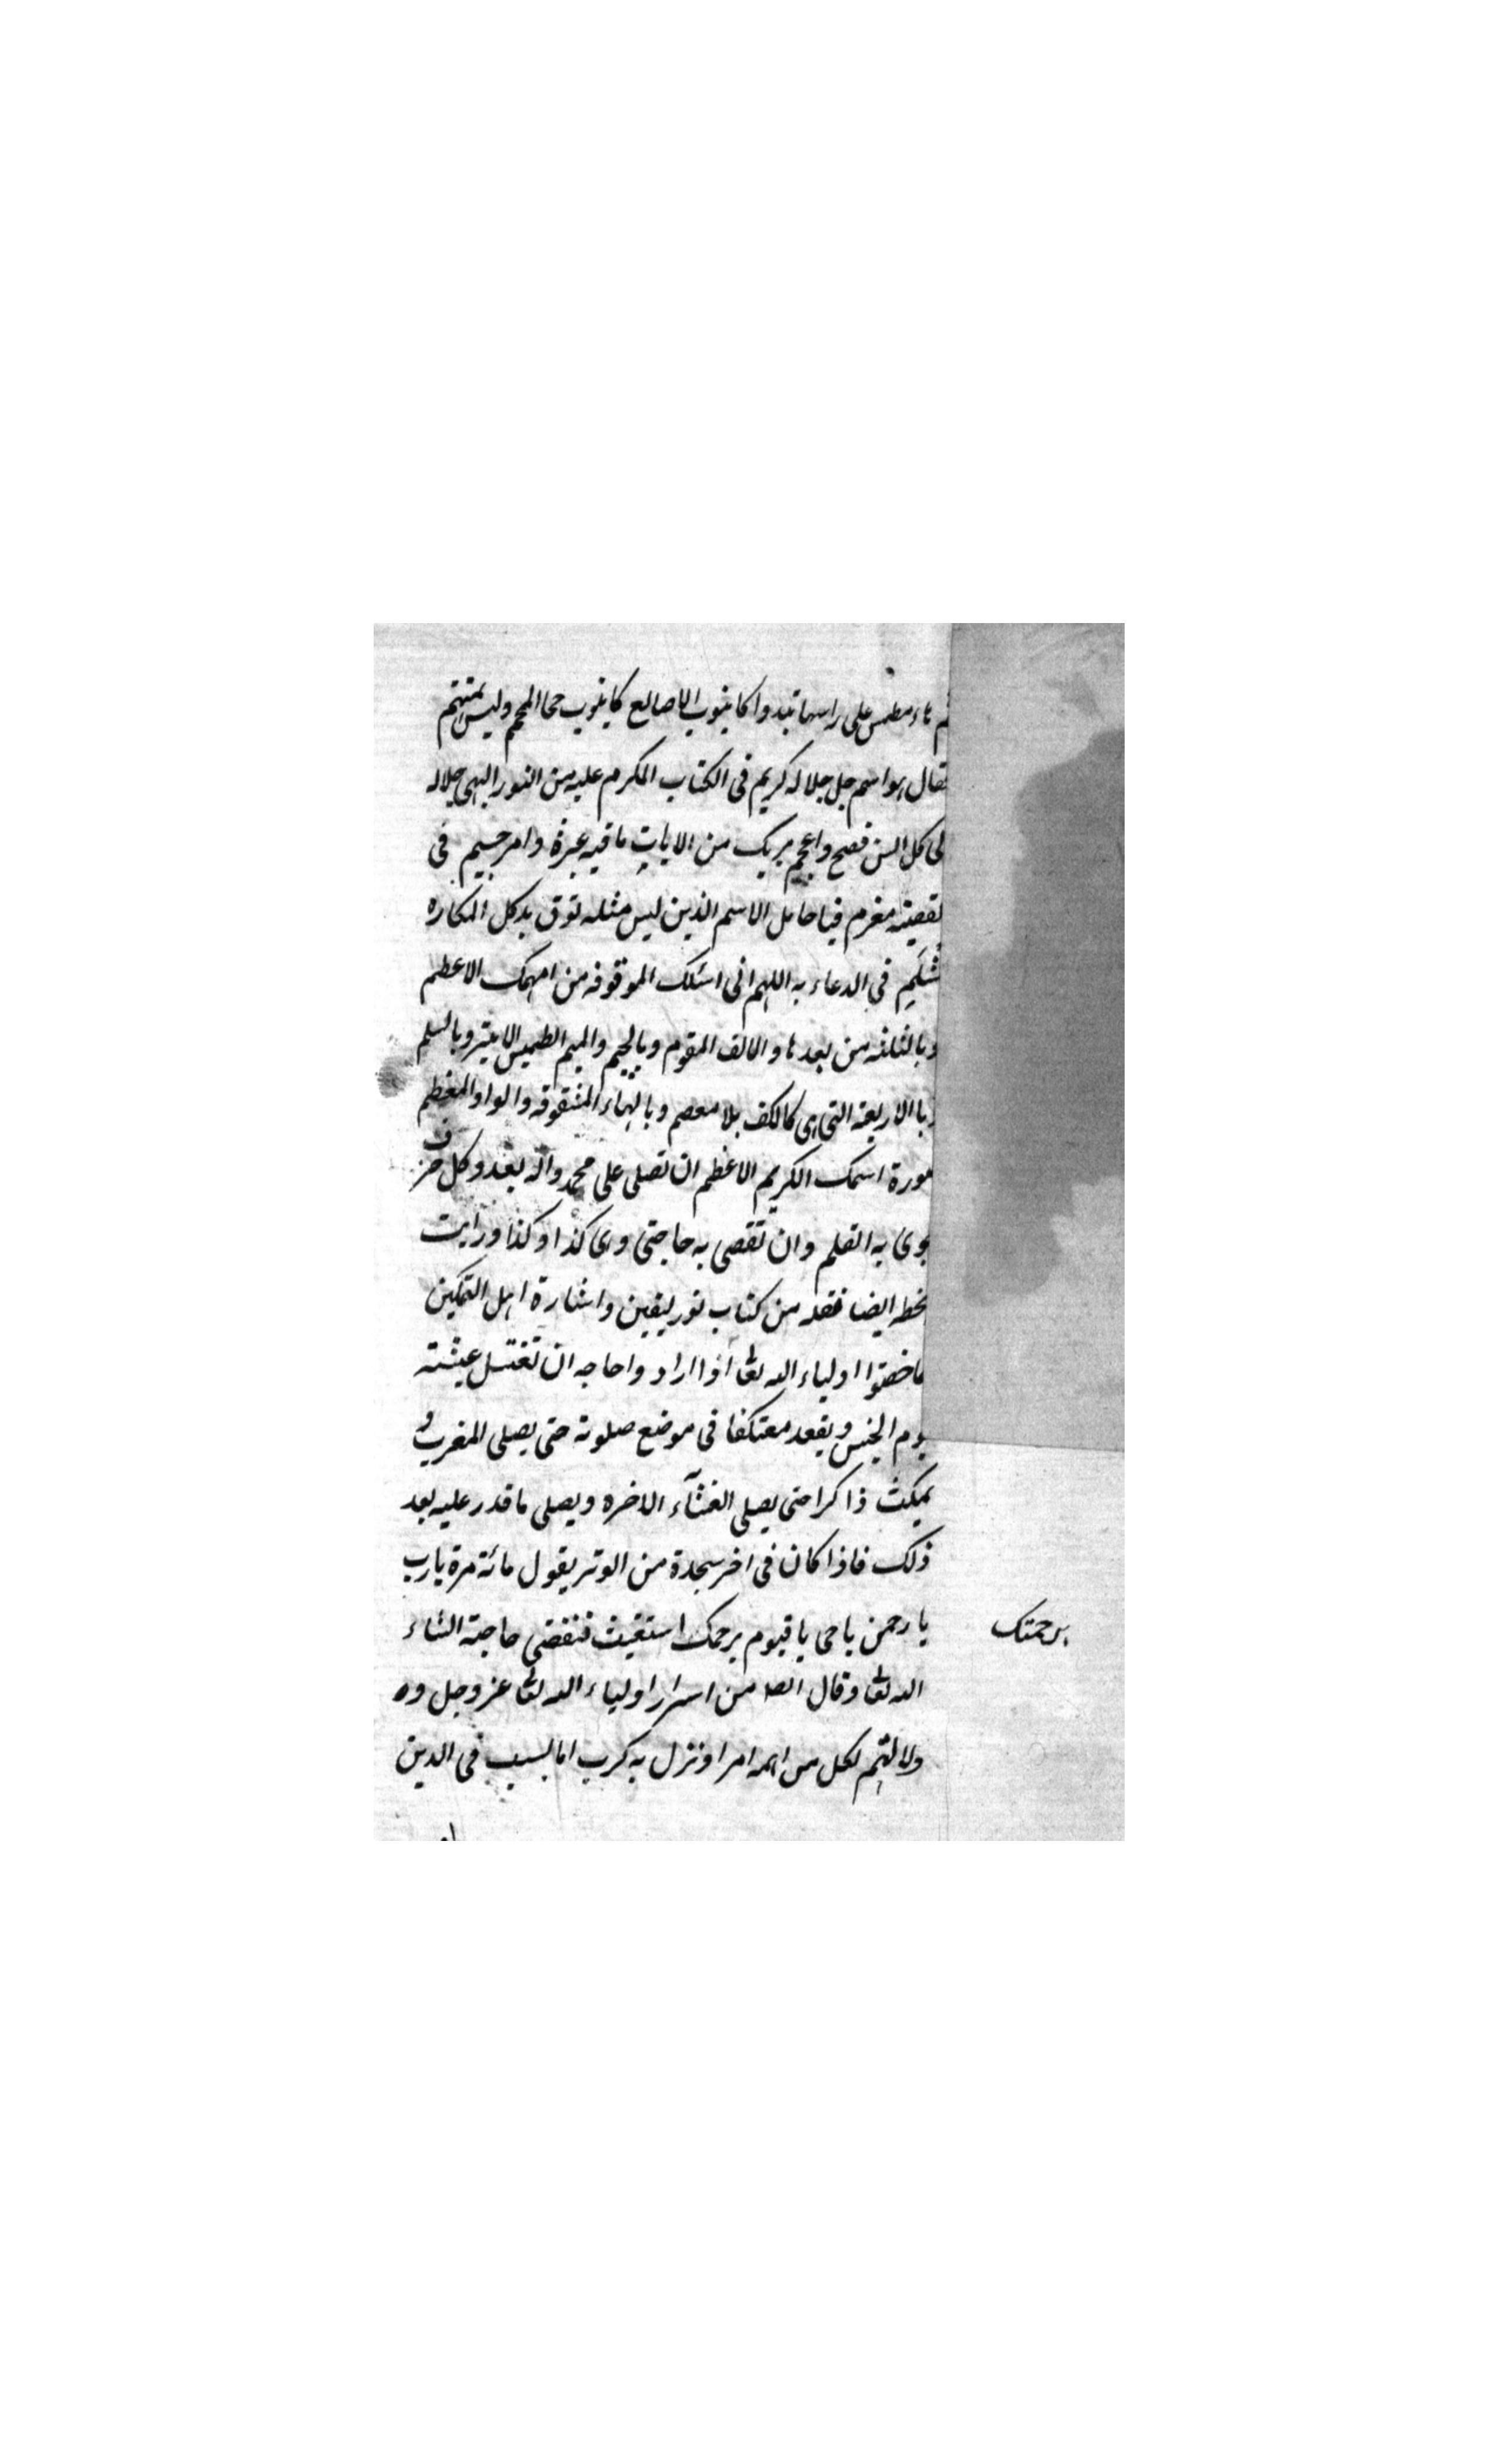 هاء مطمس على راسها تبدوا كانبوب الاصالع كانبوب حجا المحجم وليس بمحتجم
فقال هو اسم جل جلاله كريم فى الكتاب المكرم عليه من النور البهى جلاله
لى كل السن فصح واعجم يريك من الايات ما فيه عبرة وامر جسيم فى
مغرم فيا حامل الاسم الذين ليس مثله توق به كل المكاره
فى الدعاء به اللهم انى اسئلك الموقوفه من اسمك الاعظم
وبالثلثه من بعدها والالف المقوم وبالجيم والميم الطميس الابتر وبالسلم
وبالاربعة التى هى كالكف بلا معصم وبالهاء المشقوقه والواو المعظم
صورة اسمك الكريم الاعظم ان تصلى على محمد واله بعدد كل حرف
جرى به القلم وان تقضى به حاجتى وهى كذا وكذا ورايت
بخطه ايضا نقله من كتاب نور ليقين واشارة اهل التمكين
ما خصوا اولياء الله تعا اذا ارادوا حاجه ان تغتسل عيشته
يوم الخميس ويقعد معتكفا فى موضع صلوته حتى يصلى المغرب و
يمكث ذاكرا حتى يصلى العشآء الاخره ويصلى ما قدر عليه بعد
ذلك فاذا كان فى اخر سجدة من الوتر يقول مائة مرة يا رب
يا رحمن يا حى يا قيوم برحمك استغيث فتقضى حاجته انشاء
برحمتك
الله تعا وقال ايضا من اسرار اولياء الله تعا عز وجل وه
ولالتهم لكل من اهمه امر او نزل به كرب اما بسبب فى الدين